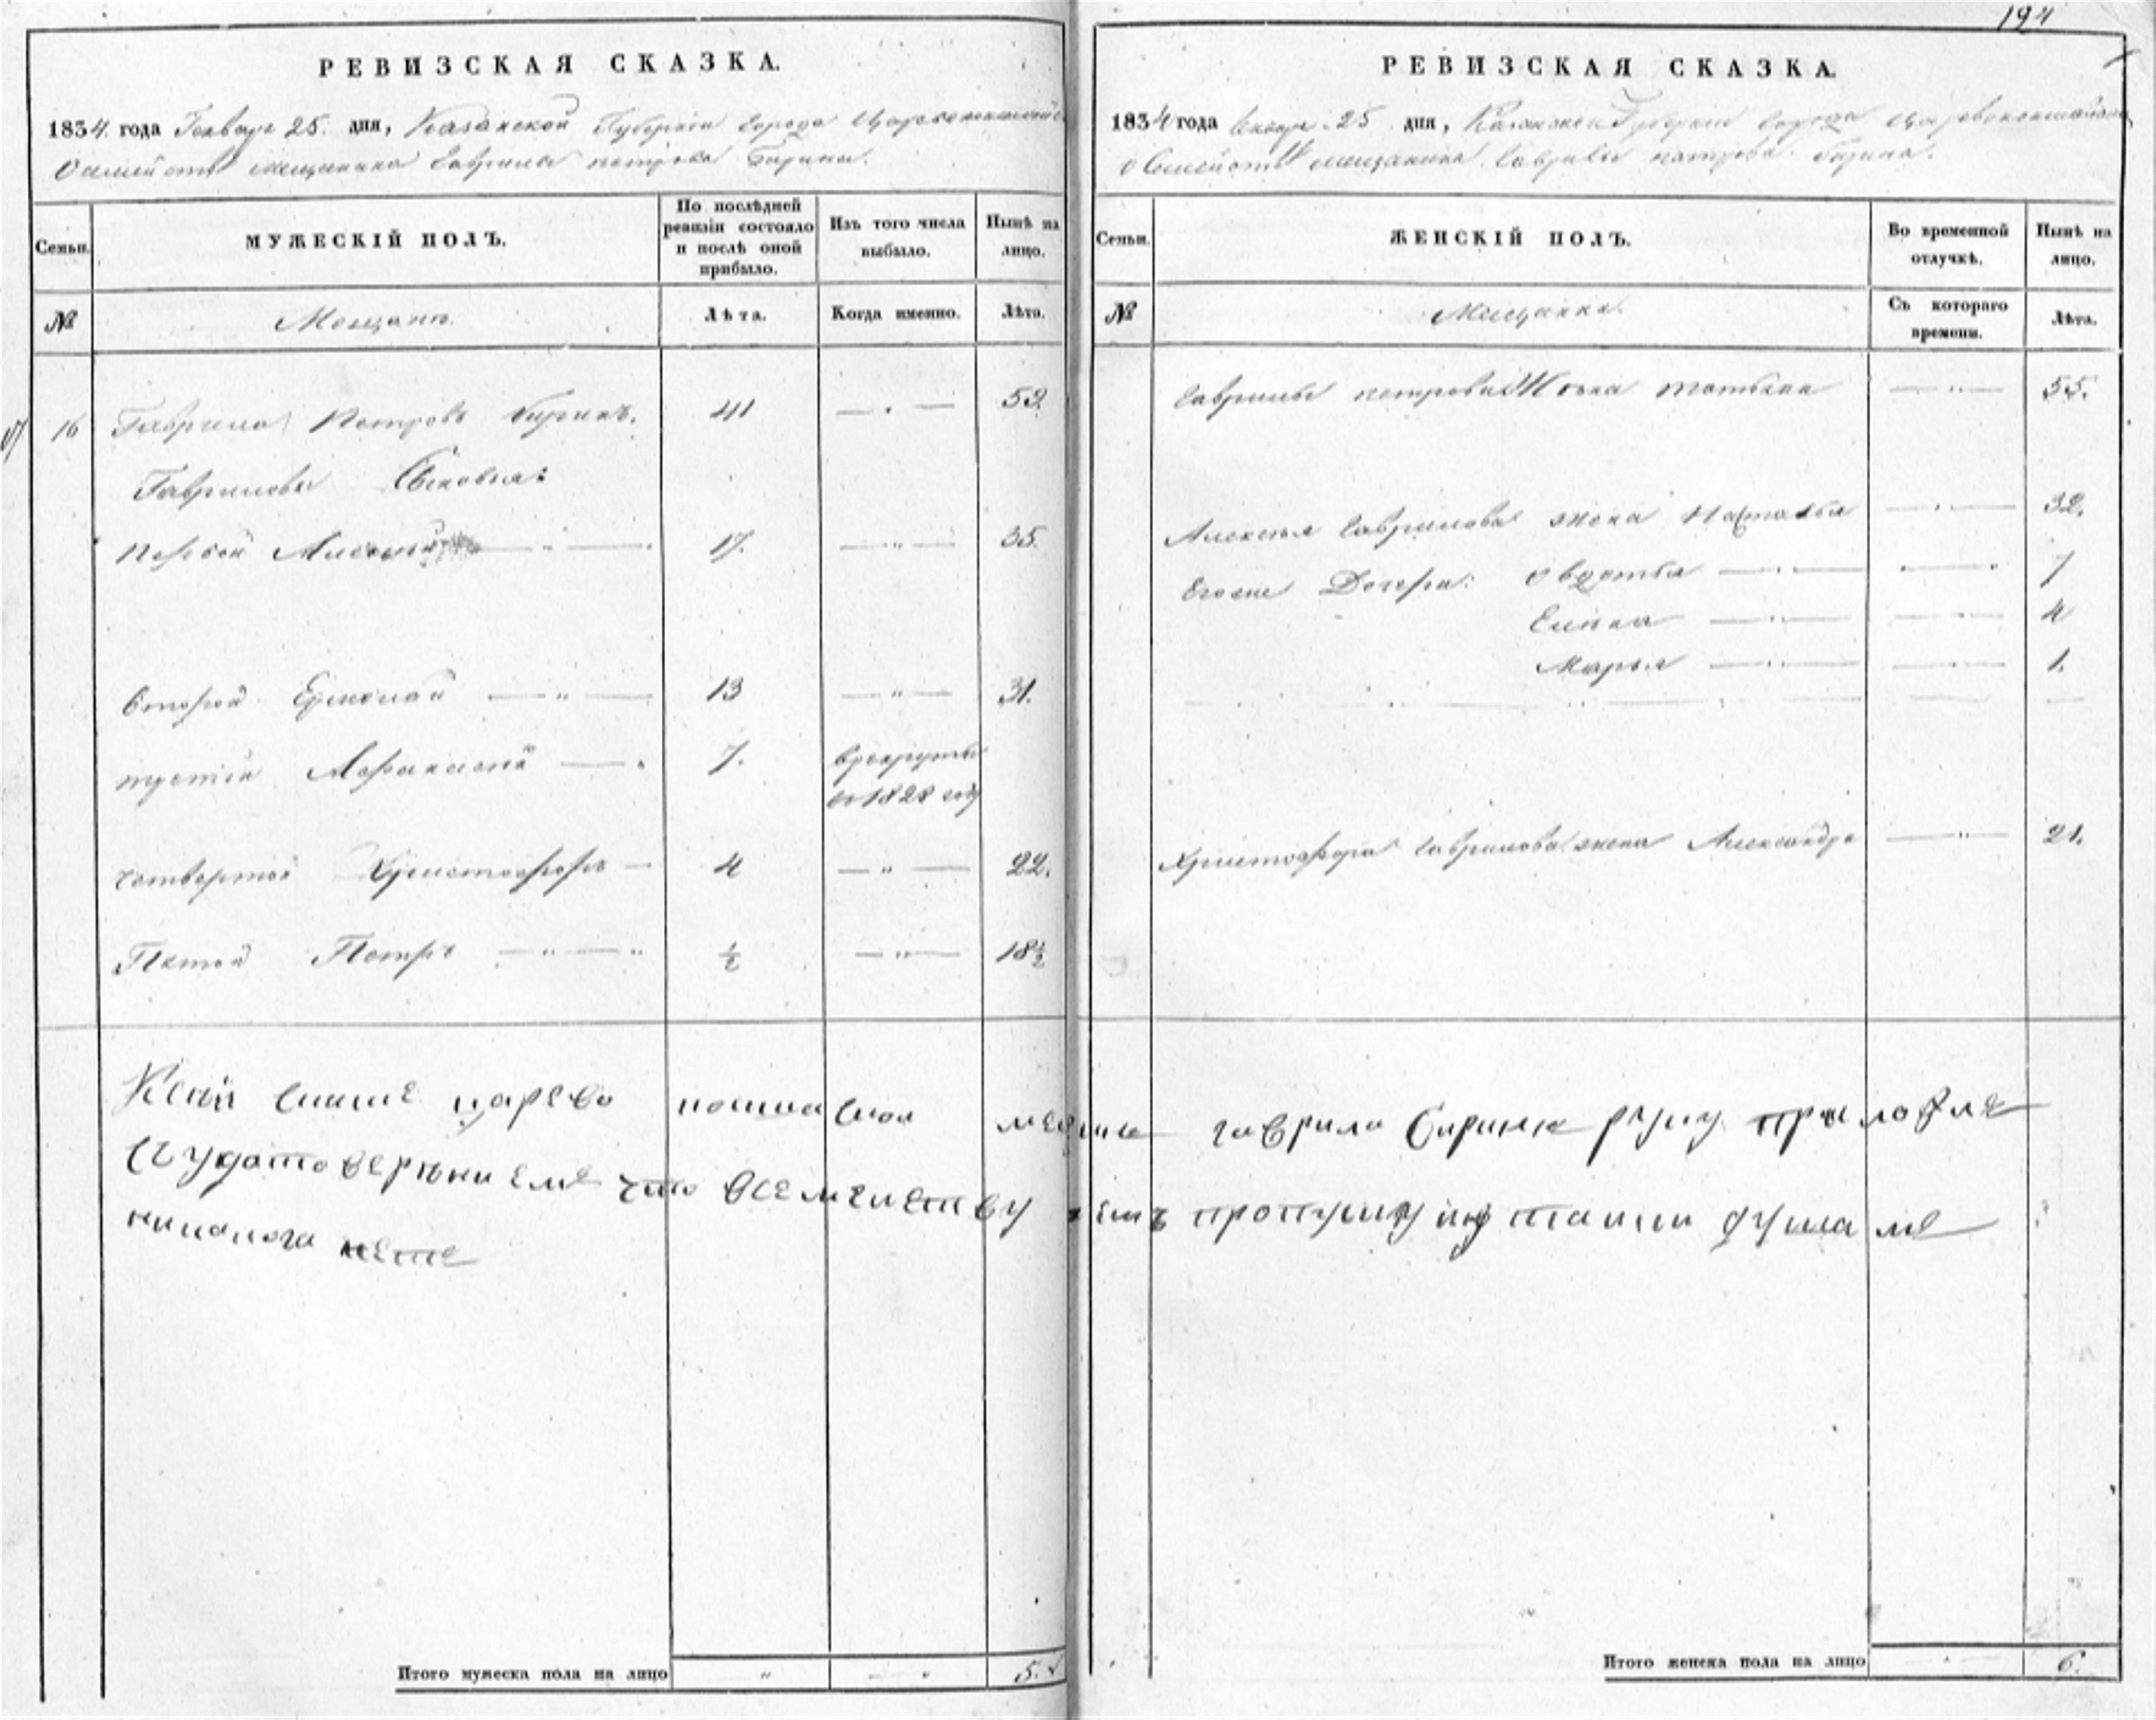 194
РЕВИЗСКАЯ СКАЗКА.
1834 года Генваря 25. дня, Казанской Губернии города Царевококшайска
О семействе мещанина Гаврилы петрова Бирина.
Семьи.
МУЖЕСКІЙ ПОЛЪ.
По послѣдней ревизіи состояло и послѣ оной прибыло.
Изъ того числа выбыло.
Нынѣ на лицо.
№
Мещанъ.
Лѣта.
Когда именно.
Лѣта.
16 Гаврила Петровъ Биринъ. 41 53.
Гавриловы Сыновья:
Первой Алексей 17. 35.
второй Ермолай 13 31.
третій Афанасей 7. в рекруты
во 1828 году
четвертой Христофоръ 4 22.
Пятой Петръ ½ 18½
РЕВИЗСКАЯ СКАЗКА.
1834 года Генваря 25 дня, Казанской Губернии города Царевококшайска
о Семействе мещанина Гаврилы петрова Бирина.
Семьи.
ЖЕНСКІЙ ПОЛЪ.
Во временной отлучкѣ.
Нынѣ на лицо.
№
Мещанки.
Съ котораго времени.
Лѣта.
Гаврилы петрова Жена татьяна 55.
Алексея Гаврилова жена Наталья 32.
Его же Дочери: Овдотья 7
Елена 4
Марья 1.
Христофора Гаврилова жена Александра 21.
Ксей скаске царево кокшаской мещане гаврила Бирине руку приложиле
суудатоверениеме что всемеиству пропуску душаме
никакога нете
Итого мужеска пола на лицо 5.
Итого женска пола на лицо 6.